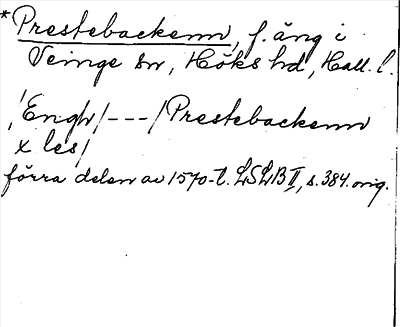 *Prestebackenn, f. äng i
Veinge sn, Höks hd, Hall. l.
/Enghr/---/Prestebackenn
x les/
förra delen av 1570-t. LSLB II, s. 384. orig.